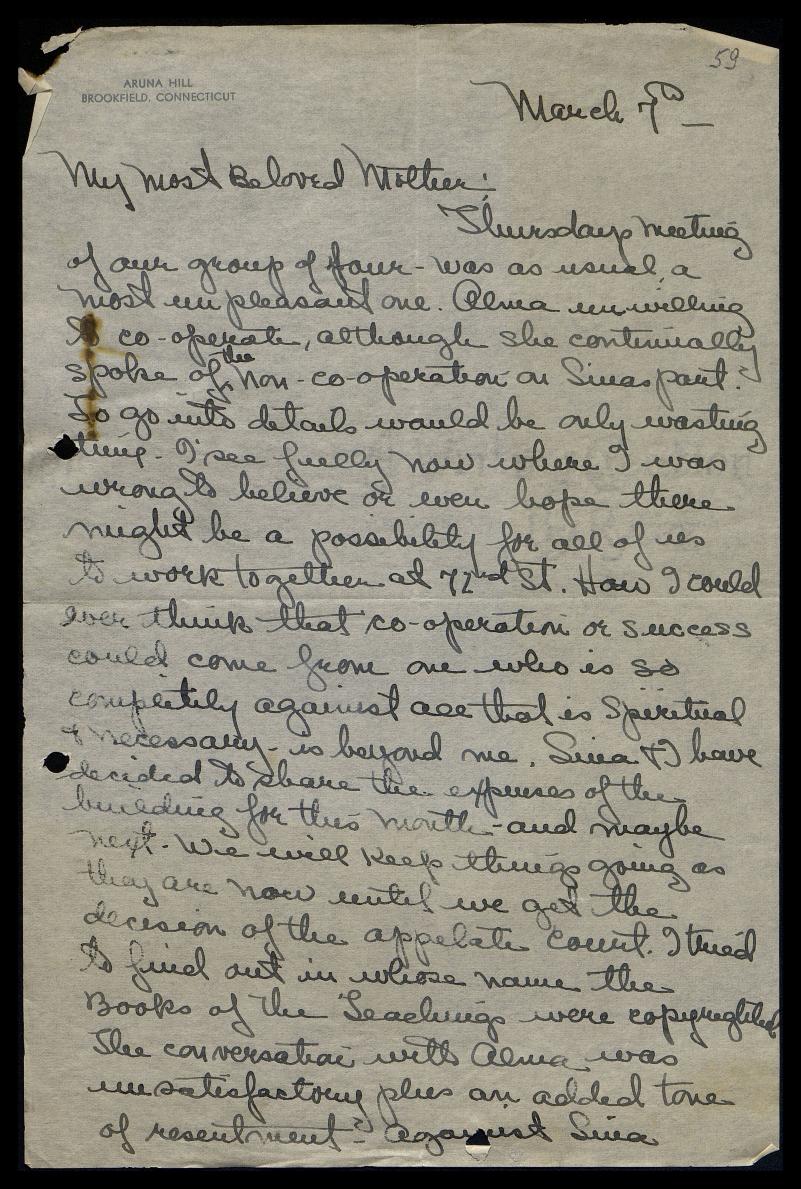 59
ARUNA HILL
BROOKFIELD, CONNECTICUT
March 7th
My most Beloved Mother:
Thursdays meeting
of our group of four - was as usual, a
most unpleasant one. Alma unwilling
to co-operate, although she continually
spoke of the non-co-operation on Sinas part.
To go into details would be only wasting
time. I see fully now where I was
wrong to believe or even hope there
might be a possibility for all of us
to work together at 72nd St. How I could
ever think that co-operation or success
could come from one who is so
completely against all that is Spiritual
& necessary - is beyond me. Sina & I have
decided to share the expenses of the
building for this month - and maybe
next. We will keep things going as
they are now until we get the
decision of the appelate court. I tried
to find out in whose name the
Books of the Teachings were copyrighted
The conversation with Alma was
unsatisfactory plus an added tone
of resentment - against Sina